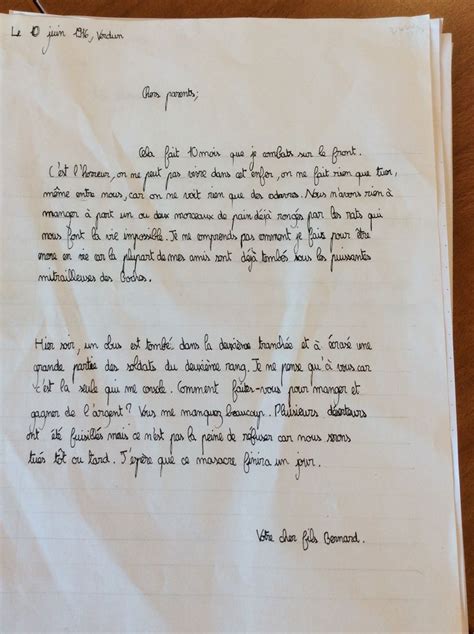 Le 10 juin 1916, Verdun
Chers parents;
Cela fait 10 mois que je combats sur le front.
C'est l'horreur, on ne peut pas vivre dans cet enfer, on ne fait rien que tuer,
même entre nous, car on ne voit rien que des ombres. Nous n'avons rien à
manger à part un ou deux morceaux de pain déjà rongés par les rats qui
nous font la vie impossible. Je ne comprends pas comment je fais pour être
encore en vie car la plupart de mes amis sont déjà tombés sous les puissantes
mitrailleuses des Boches.
Hier soir, un obus est tombé dans la deuxième tranchée et à écrasé une
grande partie des soldats du deuxième rang. Je ne pense qu'à vous car
c'est la seule qui me console. Comment faites-vous pour manger et
gagner de l'argent? Vous me manquez beaucoup. Plusieurs déserteurs
ont été fuisillés mais ce n'est pas la peine de refuser car nous serons
tués tôt ou tard. J'espère que ce masacre finira un jour.
Votre cher fils Bernard.